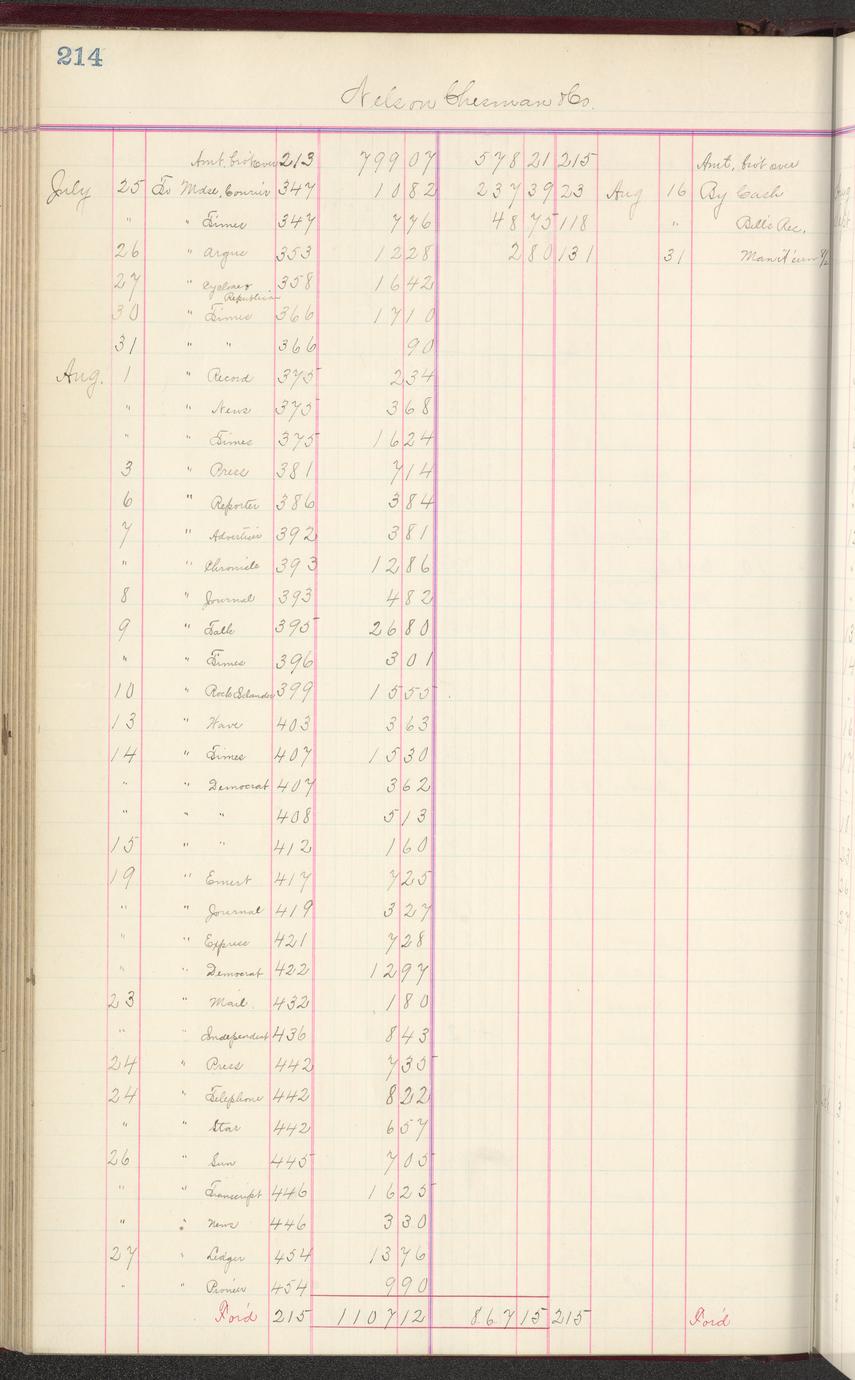 214
Nelson Chesman & Co.
Amt. bro't over 213 799 07 578 21 215 Amt. bro't over
July 25 To Mdse. Courier 347 10 82 237 39 23 Aug 16 By Cash
" " Times 347 7 76 48 75 118 " Bills Rec.
26 " Argus 353 12 28 2 80 131 31
27 " Cyclone & Republican 358 16 42
30 " Times 366 17 10
31 " " 366 90
Aug. 1 " Record 375 2 34
" " News 375 3 68
" " Times 375 16 24
3 " Press 381 7 14
6 " Reporter 386 3 84
7 " Advertiser 392 3 81
" " Chronicle 393 12 86
8 " Journal 393 4 82
9 " Talk 395 26 80
" " Times 396 3 01
10 " Rock Islander 399 15 55
13 " Wave 403 3 63
14 " Times 407 15 30
" " Democrat 407 3 62
" " " 408 5 13
15 " " 412 1 60
19 " Ernest 417 7 25
" " Journal 419 3 27
" " Express 421 7 28
" " Democrat 422 12 97
23 " Mail 432 1 80
" " Independent 436 8 43
24 " Press 442 7 35
24 " Telephone 442 8 22
" " Star 442 6 57
26 " Sun 445 7 05
" " Transcript 446 16 25
" " News 446 3 30
27 " Ledger 454 13 76
" " Pioneer 454 9 90
For'd 215 1107 12 867 15 215 For'd